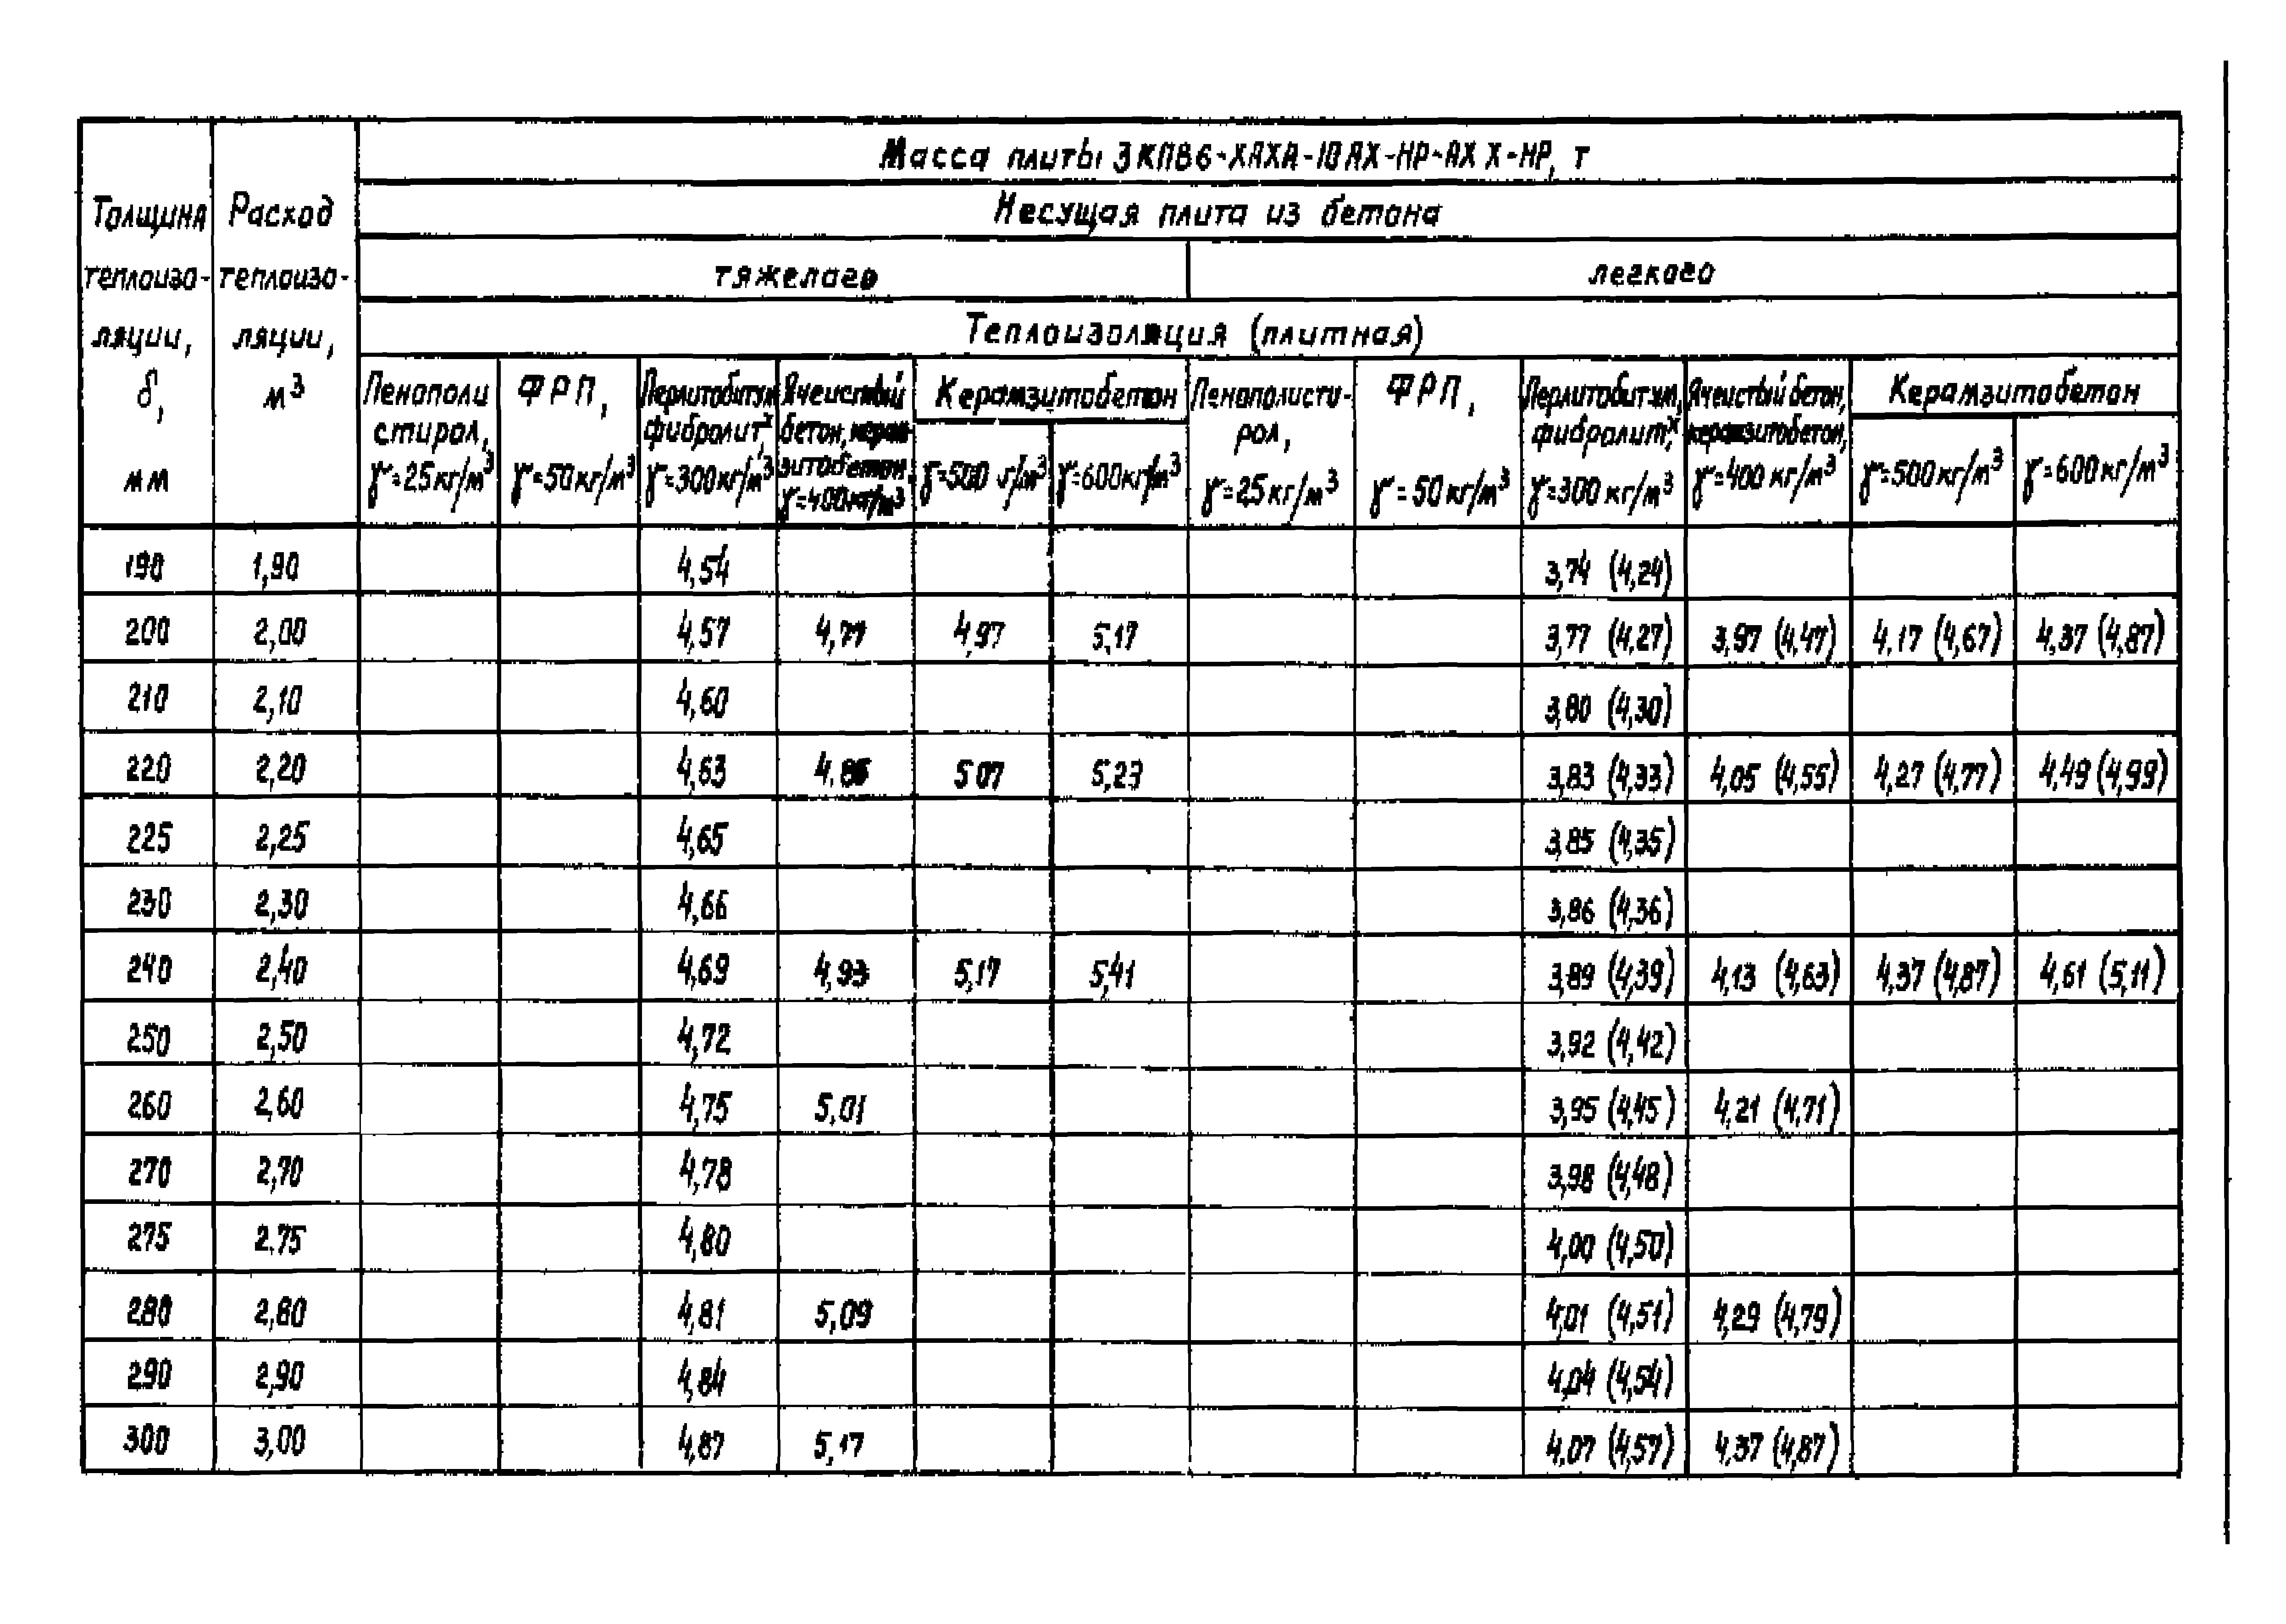 Масса плиты 3КПВ6-ХАХА-10АХ-НР-АХ Х-НР, т
Несущая плита из бетона
Толщина теплоизоляции, δ, мм
Расход теплоизоляции, м³
тяжелого легкого
Теплоизоляция (плитная)
Пенополистирол, γ=25кг/м³
ФРП, γ=50кг/м³
Перлитобитум, фибролит,ˣ γ=300кг/м³
Ячеистый бетон, керамзитобетон, γ=400кг/м³
Керамзитобетон
γ=500 кг/м³ γ=600кг/м³
Пенополистирол, γ=25кг/м³
ФРП, γ=50кг/м³
Перлитобитум, фибролит,ˣ γ=300кг/м³
Ячеистый бетон, керамзитобетон, γ=400кг/м³
Керамзитобетон
γ=500кг/м³ γ=600кг/м³
190 1,90 4,54 3,74 (4,24)
200 2,00 4,57 4,77 4,97 5,17 3,77 (4,27) 3,97 (4,47) 4,17 (4,67) 4,37 (4,87)
210 2,10 4,60 3,80 (4,30)
220 2,20 4,63 4,85 5 07 5,23 3,83 (4,33) 4,05 (4,55) 4,27 (4,77) 4,49 (4,99)
225 2,25 4,65 3,85 (4,35)
230 2,30 4,66 3,86 (4,36)
240 2,40 4,69 4,93 5,17 5,41 3,89 (4,39) 4,13 (4,63) 4,37 (4,87) 4,61 (5,11)
250 2,50 4,72 3,92 (4,42)
260 2,60 4,75 5,01 3,95 (4,45) 4,21 (4,71)
270 2,70 4,78 3,98 (4,48)
275 2.75 4,80 4,00 (4,50)
280 2,80 4,81 5,09 4,01 (4,51) 4,29 (4,79)
290 2,90 4,84 4,04 (4,54)
300 3,00 4,87 5,17 4,07 (4,57) 4,37 (4,87)